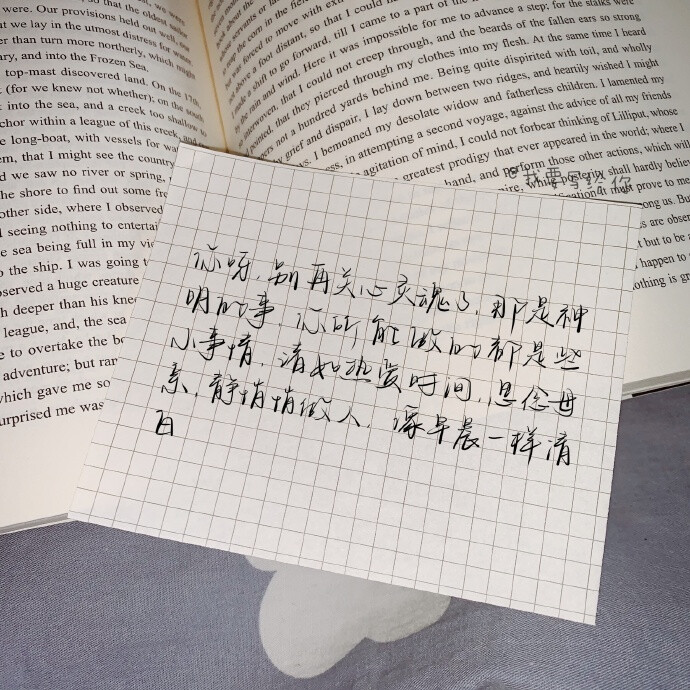 were. Our provisions held out well, our
we lay in the utmost distress for
than turn more northerly, which might
and into the Frozen Sea.
top-mast discovered land. On the 17th
(for we knew not whether); on the south
into the sea, and a creek too shallow to
within a league of this creek, and
long-boat, with vessels for
that I might see the country
we saw no river or spring,
the shore to find out some
other side, where I observed
seeing nothing to
the sea being full in my
the ship. I was going to
observed a huge creature
deeper than his
league, and, the sea
to overtake the
adventure; but ran
which gave me
surprised me was
corn in the
was forced to move with
a foot distant, so that I could
shift to go forward, till I came to a part of the
the rain and wind. Here it was impossible for me to advance a step; for the stalks were
interwoven, that I could not creep through, and the beards of the fallen ears so strong
pointed, that they pierced through my clothes into my flesh. At the same time I heard
not a hundred yards behind me. Being quite dispirited with toil, and wholly
by grief and dispair, I lay down between two ridges, and heartily wished I might
I bemoaned my desolate widow and fatherless children. I lamented my
in attempting a second voyage, against the advice of all my friends
agitation of mind, I could not forbear thinking of Lilliput, whose
greatest prodigy that ever appeared in the world; where I
hand, and perform those other actions, which will
while posterity shall hardly believe
must prove to me
among us. But
are observed
but to be a
happen to
nothing is
我要写给你
你呀,别再关心灵魂了,那是神
明的事 你所能做的都是些
小事情,诸如热爱时间,思念母
亲,静悄悄做人,像早晨一样清
白